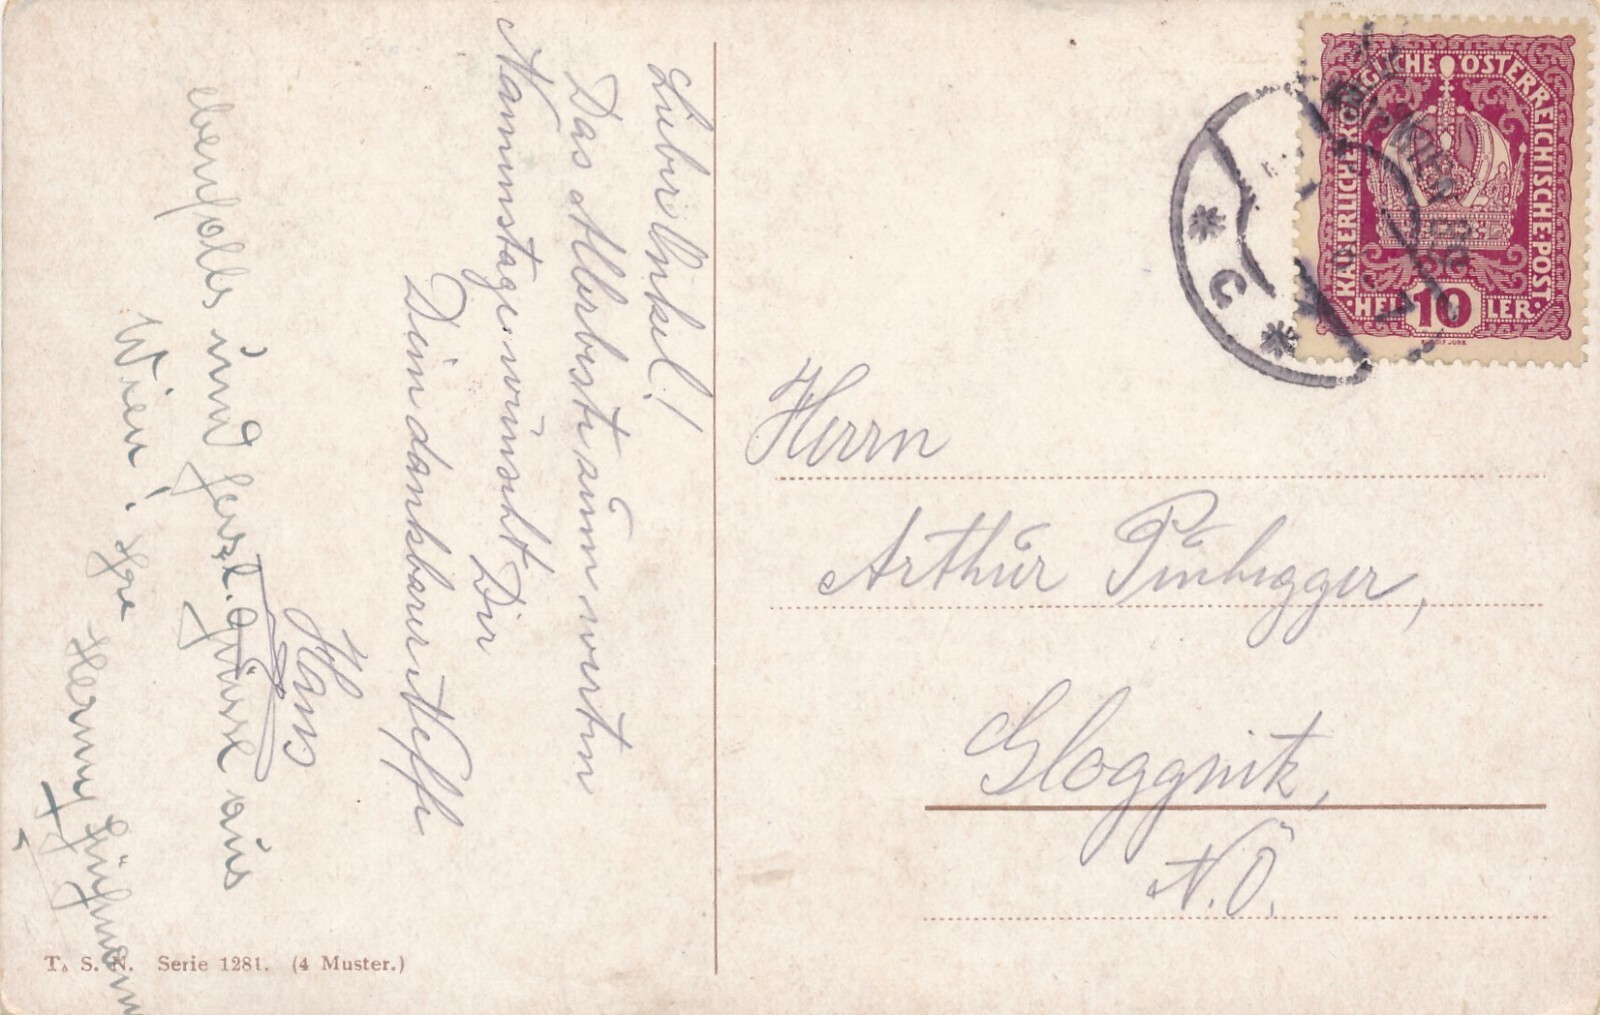 Lieber Onkel!
Das Allerbeste zum werten
Namenstage wünscht Dir
Dein dankbarer Neffe
Hans
ebenfalls und herzl. Grüsse aus
Wien! Ihre
Hermy
Herrn
Arthur
Gloggnitz,
N.Ö.
KAISERLICHE·KÖNIGLICHE ÖSTERREICHISCHE·POST·
HELLER
10
T. S. N. Serie 1281. (4 Muster.)